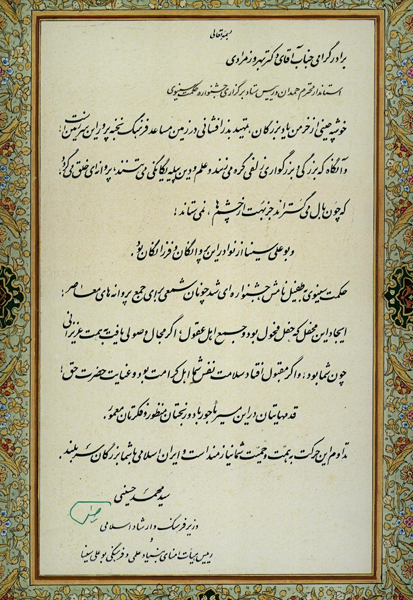 بسمه تعالی
برادر گرامی جناب آقای دکتر بهروز مرادی
استاندار محترم همدان و رییس ستاد برگزاری جشنواره حکمت سینوی
خوشه چینی از خرمن ها و بزرگان، تمهید بذر افشانی در زمین مساعد فرهنگ نخبه پرور این سرزمین است؛
و آنگاه که بزرگی با بزرگواری زلفی گره می زند و علم و دین پیله یگانگی می تنند؛ پروانه ای خلق می گردد
که چون بال می گستراند جز بهت از چشم ها، نمی ستاند؛
و بوعلی سینا از نوادر این پروانگان و فرزانگان بود.
حکمت سینوی به طفیل نامش جشنواره ای شد چونان شمعی برای جمع پروانه های معاصر؛
ایجاد این محفل که حفل فحول بود و جمیع اهل عقول؛ اگر مجال وصولی یافت به همت عزیزانی
چون شما بود، و اگر مقبول افتاد سلامت نفس شما اهل کرامت بود و عنایت حضرت حق؛
قدمهایتان در این سیر ماجور باد و زحمتتان منظور و فکرتان معمور.
تداوم این حرکت به همت و حمیت شما نیازمند است و ایران اسلامی ما به شما بزرگان سربلند.
سید محمد حسینی
وزیر فرهنگ و ارشاد اسلامی
و
رییس هیأت امنای بنیاد علمی و فرهنگی بوعلی سینا